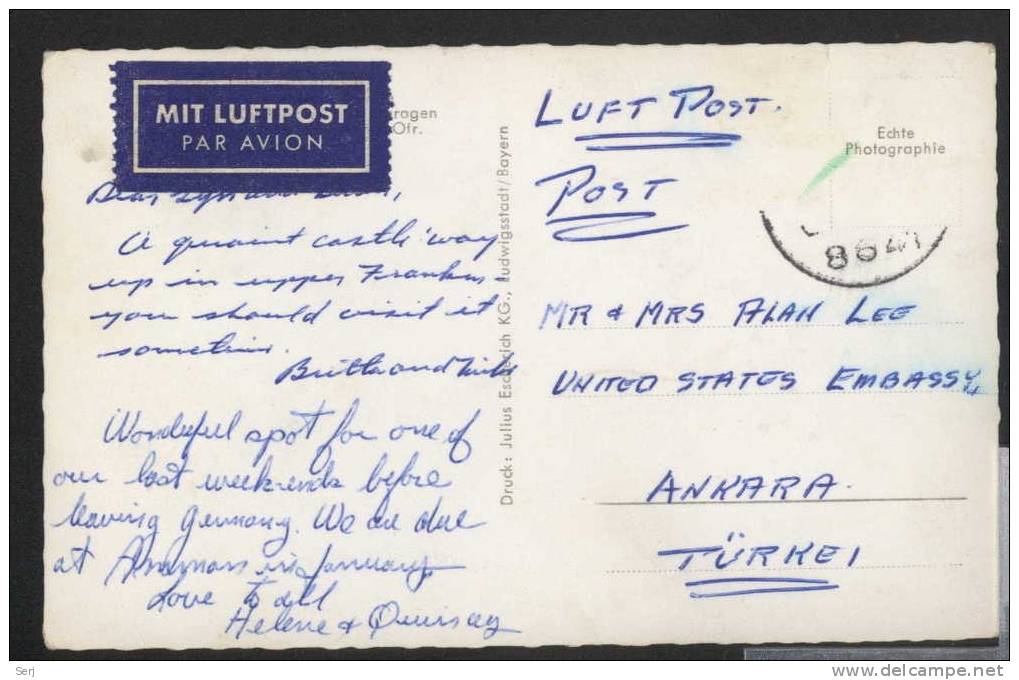 MIT LUFTPOST
PAR AVION
rogen
Ofr.
Dear
A quaint castle 'way
up in upper Franken -
you should visit it
sometime.
Britta and
Wonderful spot for one of
our last week-ends before
leaving Germany. We are due
at Amman in January.
Love to all
Helene &
Druck: Julius Escherich KG., Ludwigsstadt/Bayern
LUFT POST.
POST
Echte
Photographie
8641
MR & MRS ALAN LEE
UNITED STATES EMBASSY
ANKARA.
TÜRKEI
Serj
www.delcampe.net